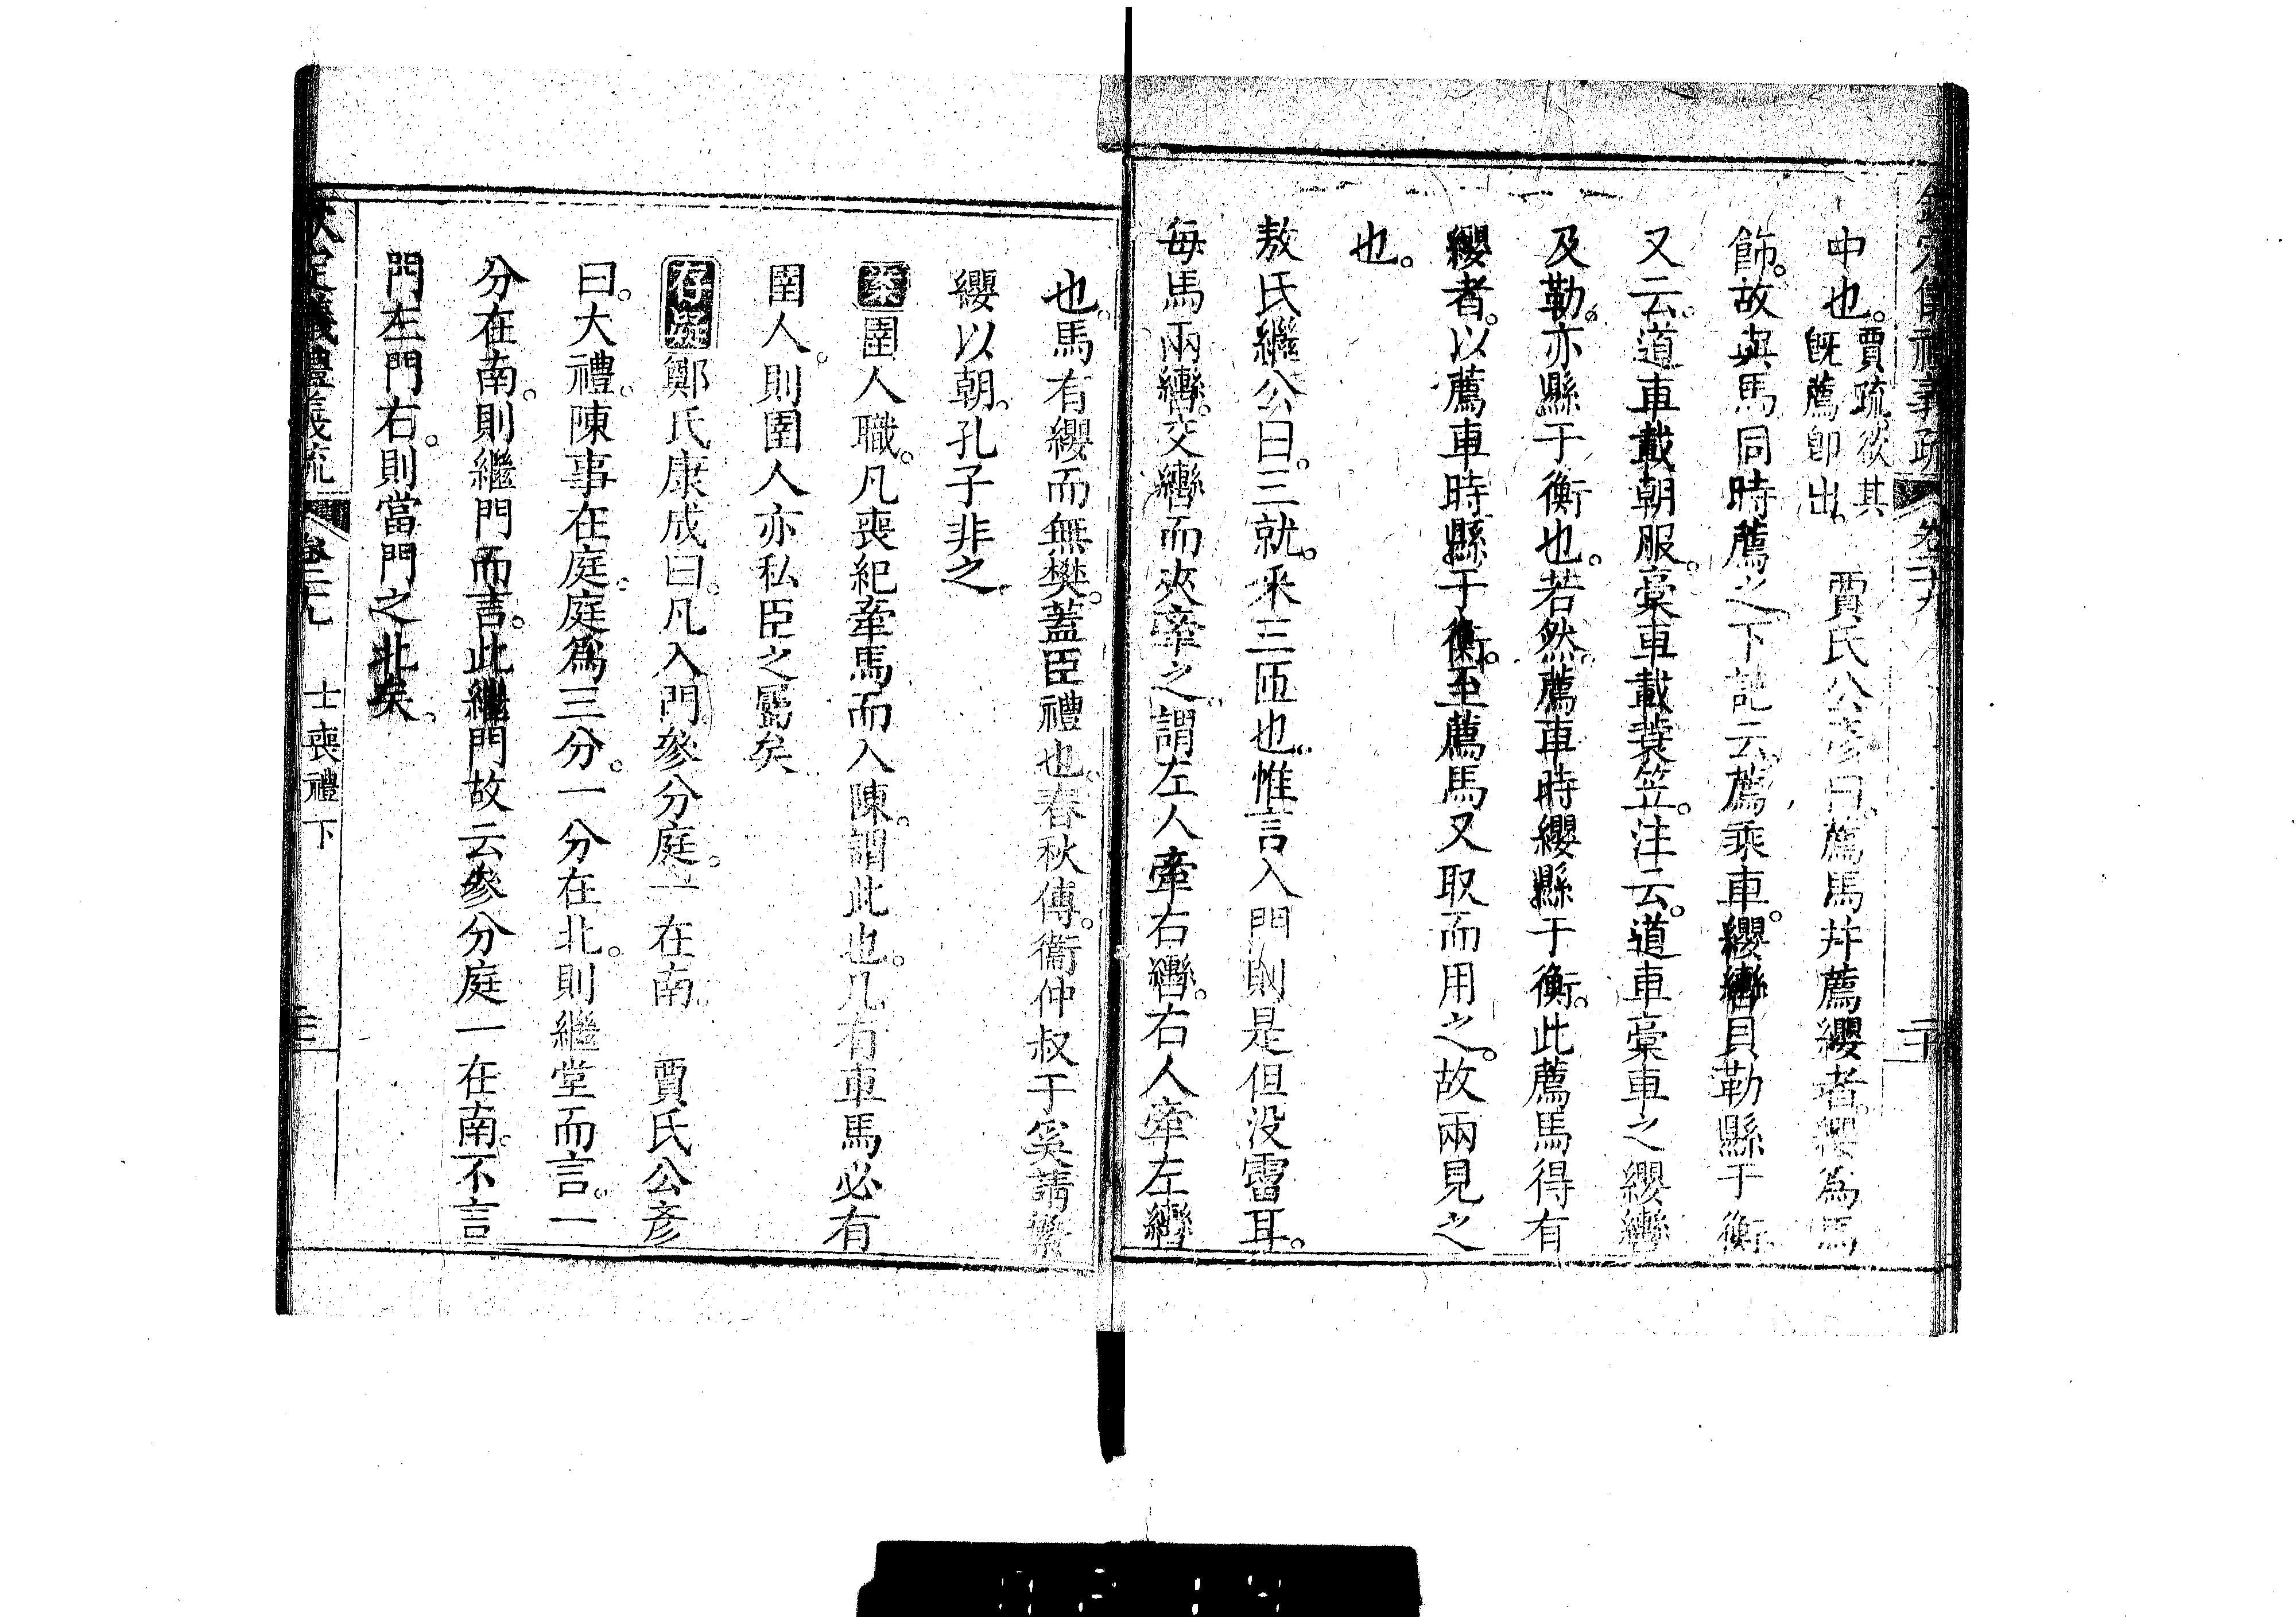 欽定儀禮義疏 卷二九 二十
中也。賈疏。欲其既薦卽出。 賈氏公彥曰。薦馬幷薦纓者。纓為馬
飾。故與馬同時薦之。下記云。薦乘車。纓轡貝勒縣于衡。
又云。道車載朝服。稾車載蓑笠。注云。道車稾車之纓轡
及勒。亦縣于衡也。若然。薦車時纓縣于衡。此薦馬得有
纓者。以薦車時縣于衡。至薦馬又取而用之。故兩見之
也。
敖氏繼公曰。三就。采三匝也。惟言入門。則是但没霤耳。
每馬兩轡。交轡而夾牽之。謂左人牽右轡。右人牽左轡
也。馬有纓而無樊。蓋臣禮也。春秋傳。衞仲叔于奚請繁
纓以朝。孔子非之。
案圉人職。凡喪紀牽馬而入陳。謂此也。凡有車馬必有
圉人。則圉人亦私臣之屬矣。
存疑鄭氏康成曰。凡入門參分庭。一在南。 賈氏公彥
曰。大禮。陳事在庭。庭爲三分。一分在北。則繼堂而言。一
分在南。則繼門而言。此繼門。故云參分庭一在南。不言
門左門右。則當門之北矣。
欽定儀禮義疏 卷二九 士喪禮下